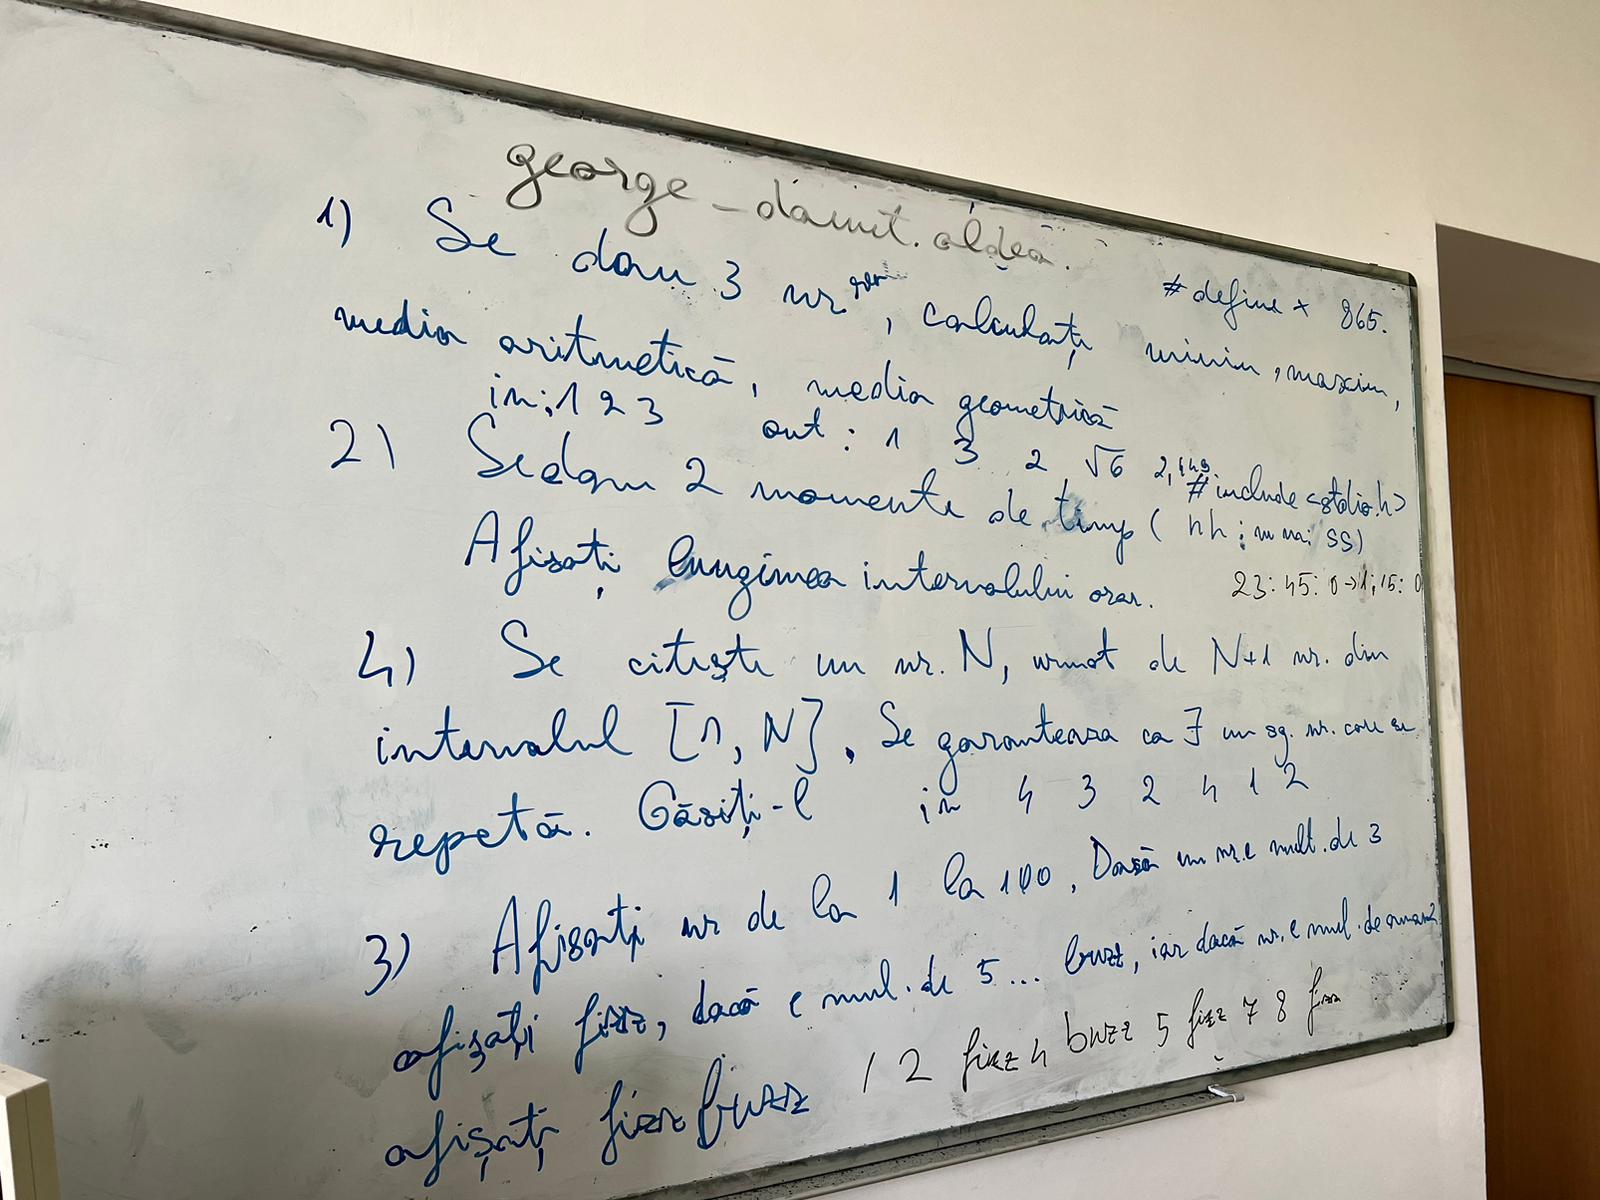 george_damit.aldea.
#define x 865.
1) Se dau 3 nr , calculați minim, maxim,
media aritmetică, media geometrică
in: 1 2 3 out: 1 3 2 √6 2,449
#include <stdio.h>
2) Se dau 2 momente de timp (hh:mm:ss)
Afisați lungimea intervalului orar.
23:45:0→1:15:0
4) Se citește un nr. N, urmat de N+1 nr. din
intervalul [1, N]. Se garanteaza ca ∃ un sg. nr. care se
repetă. Găsiți-l in 4 3 2 4 1 2
3) Afisați nr de la 1 la 100. Dacă un nr. e mult. de 3
afișați fizz, dacă e mul. de 5... buzz, iar dacă nr. e mul. de
afișați fizzbuzz 1 2 fizz 4 buzz 5 fizz 7 8 fizz